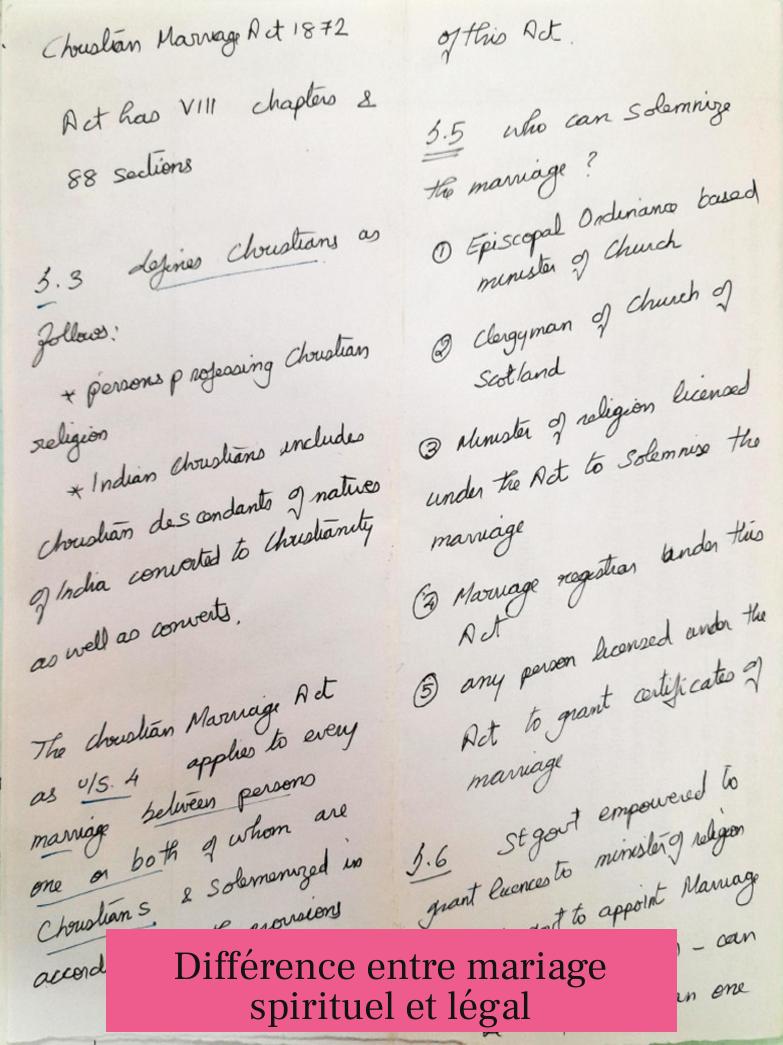 Christian Marriage Act 1872
Act has VIII chapters &
88 sections
S.3 defines Christians as
follows:
* persons professing Christian
religion
* Indian Christians includes
Christian descendants of natives
of India converted to Christianity
as well as converts.
The Christian Marriage Act
as u/s. 4 applies to every
marriage between persons
one or both of whom are
Christians & Solemenized in
accord provisions
of this Act.
S.5 who can solemnize
the marriage ?
① Episcopal Ordinance based
minister of Church
② Clergyman of Church of
Scotland
③ Minister of religion licensed
under the Act to Solemnise the
marriage
④ Marriage registrar under this
Act
⑤ any person licensed under the
Act to grant certificates of
marriage
S.6 St govt empowered to
grant licences to minister of religion
to appoint Marriage
- can
one
Différence entre mariage
spirituel et légal